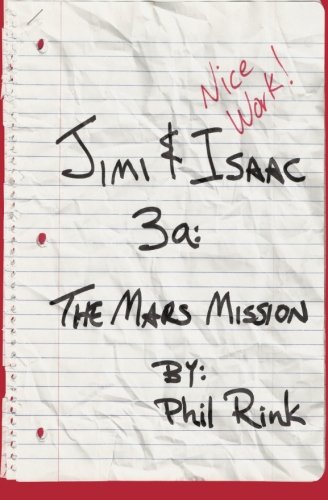 Nice
Work!
Jimi & Isaac
3a:
The Mars Mission
By:
Phil Rink